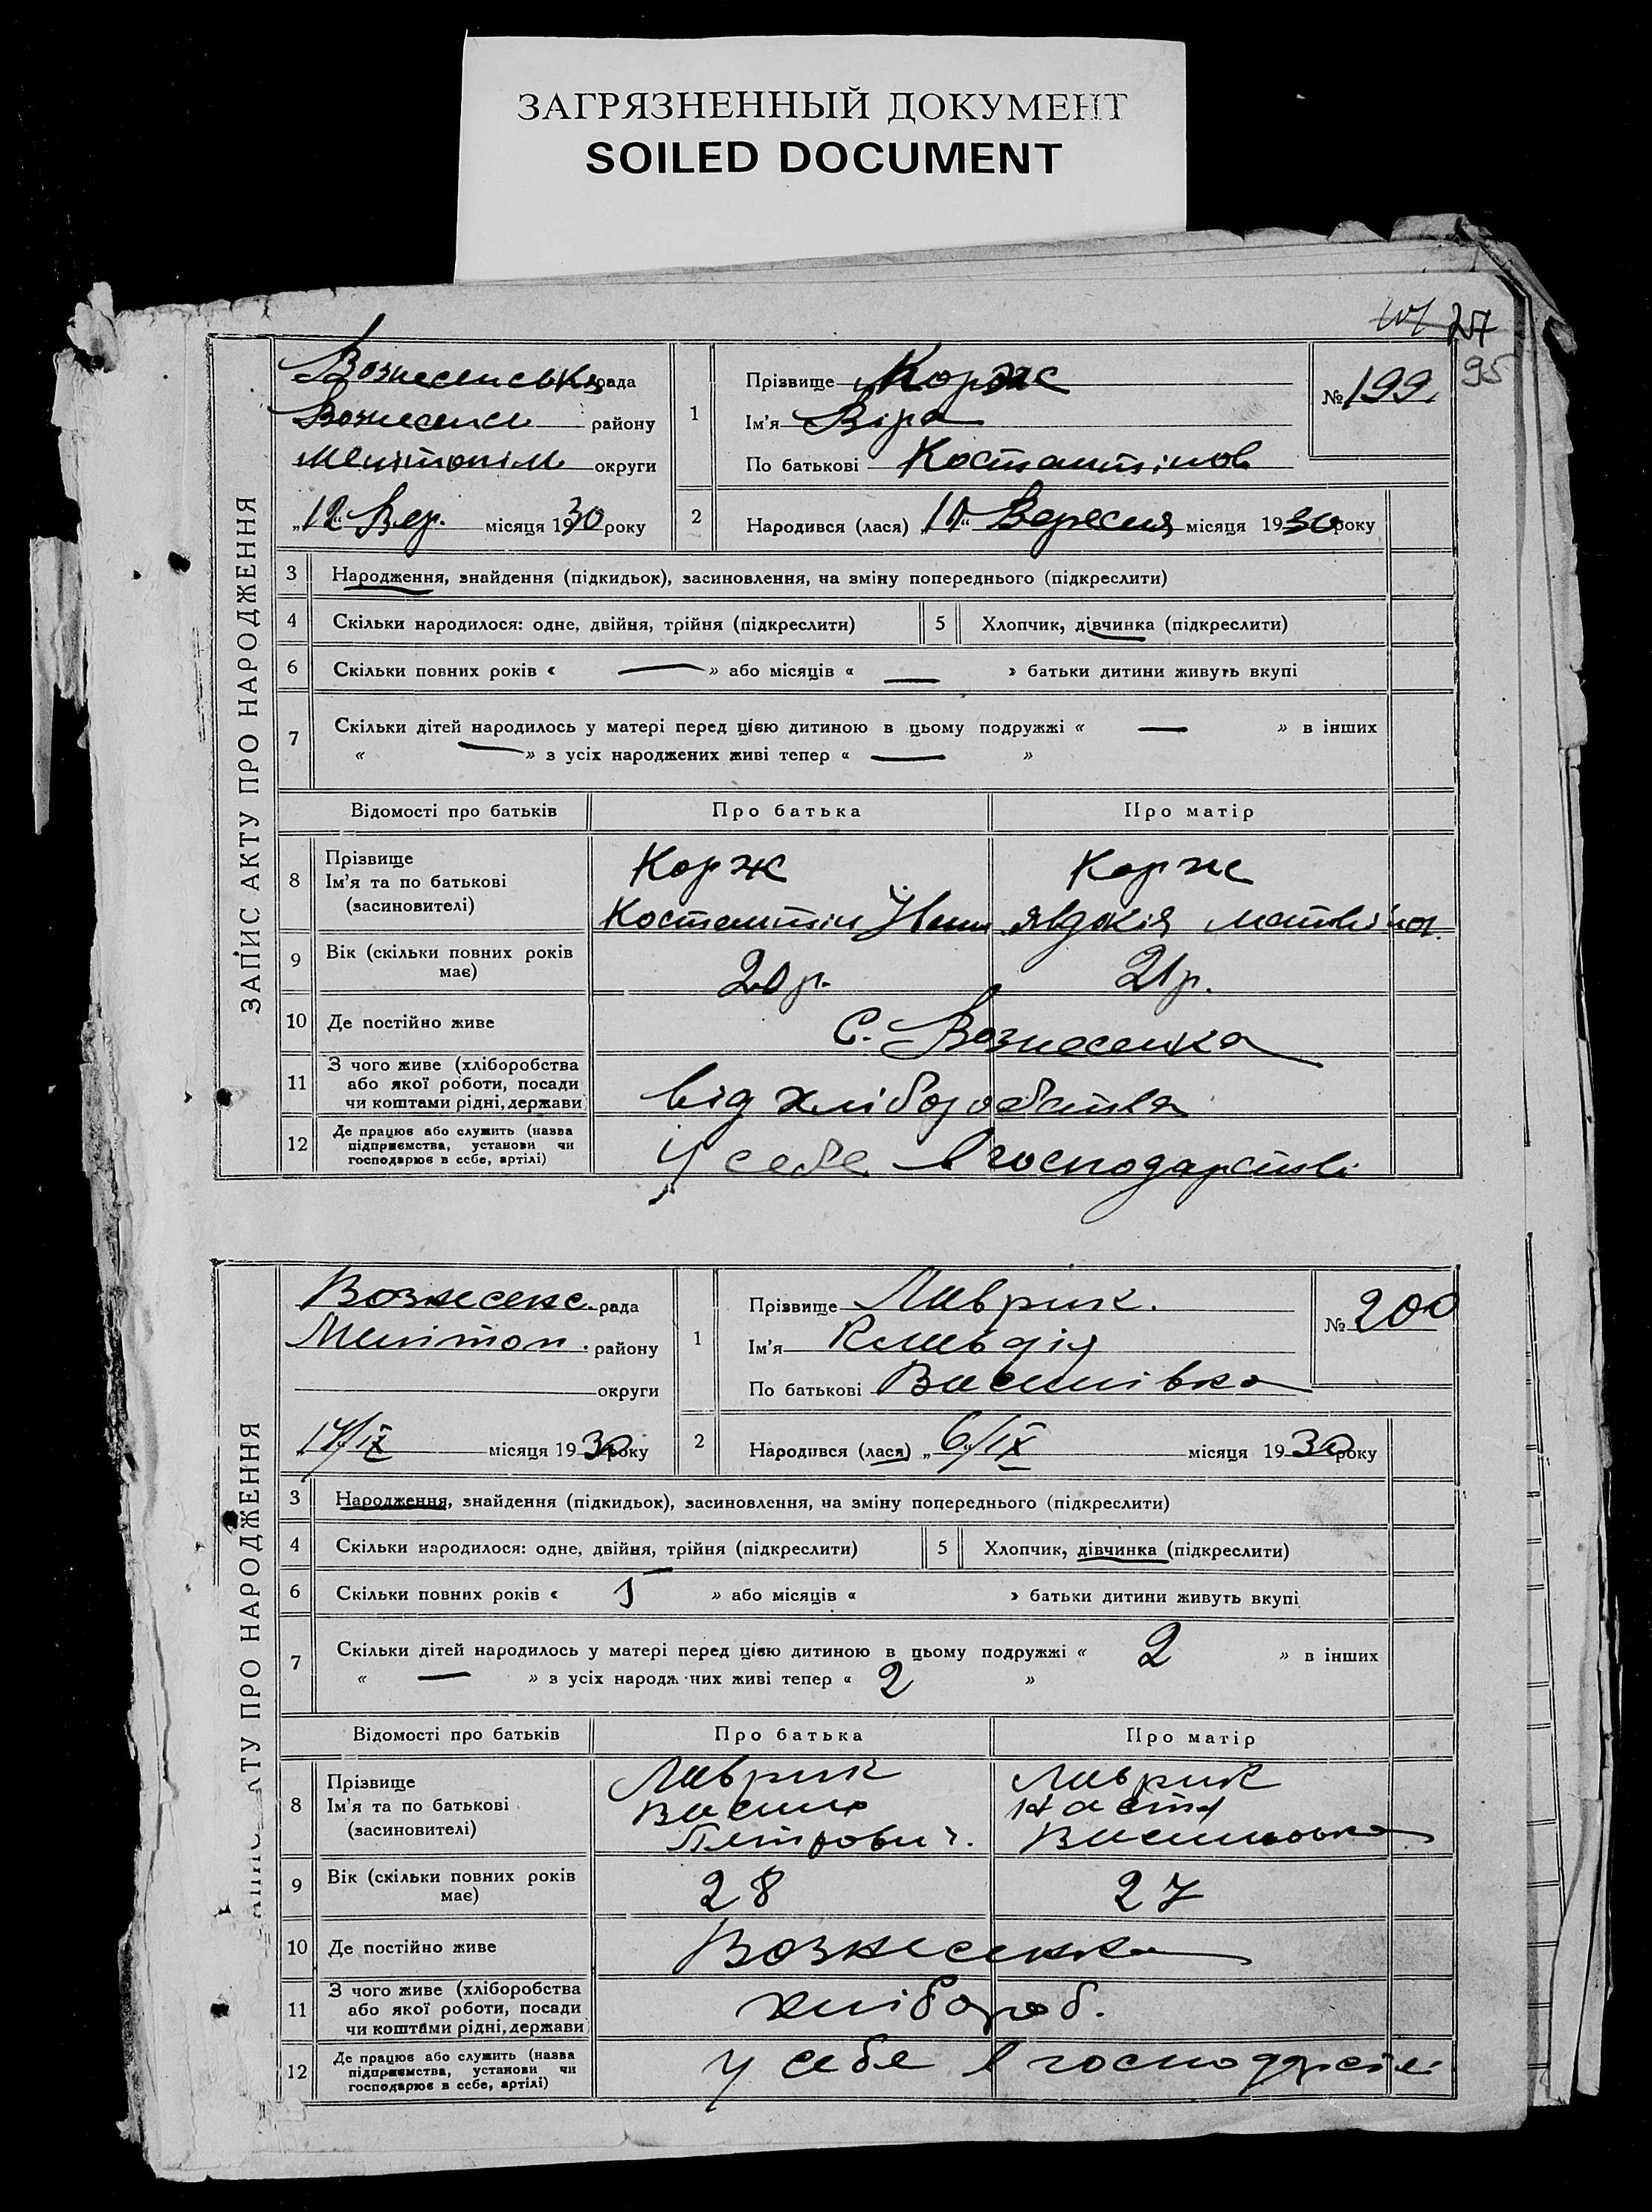 ЗАГРЯЗНЕННЫЙ ДОКУМЕНТ
SOILED DOCUMENT
27
95
ЗАПИС АКТУ ПРО НАРОДЖЕННЯ
Вознесенська рада
Вознесенс району
округи
"12" Вер. місяця 1930 року
1 Прізвище Корж
Ім'я Віра
По батькові Костантінов
№ 199
2 Народився (лася) Вересня місяця 1930 року
3 Народження, знайдення (підкидьок), засиновлення, на зміну попереднього (підкреслити)
4 Скільки народилося: одне, двійня, трійня (підкреслити) 5 Хлопчик, дівчинка (підкреслити)
6 Скільки повних років « — » або місяців « — » батьки дитини живуть вкупі
7 Скільки дітей народилось у матері перед цією дитиною в цьому подружжі « — » в інших
« — » з усіх народжених живі тепер « — »
Відомості про батьків Про батька Про матір
8 Прізвище
Ім'я та по батькові
(засиновителі)
Корж Корж
Костантін Іван Явдокія Матвіівн.
9 Вік (скільки повних років
має)
20 р. 21 р.
10 Де постійно живе С. Вознесенка
11 З чого живе (хліборобства
або якої роботи, посади
чи коштами рідні, держави)
від хліборобства
12 Де працює або служить (назва
підприємства, установи чи
господарює в себе, артілі)
У себе в господарстві
ЗАПИС АКТУ ПРО НАРОДЖЕННЯ
Вознесенс. рада
Меліт​оп. району
округи
14/IX місяця 1930 року
1 Прізвище Лаврик.
Ім'я Клавдія
По батькові Василівна
№ 200
2 Народився (лася) „6/IX місяця 1930 року
3 Народження, знайдення (підкидьок), засиновлення, на зміну попереднього (підкреслити)
4 Скільки народилося: одне, двійня, трійня (підкреслити) 5 Хлопчик, дівчинка (підкреслити)
6 Скільки повних років « 5 » або місяців « » батьки дитини живуть вкупі
7 Скільки дітей народилось у матері перед цією дитиною в цьому подружжі « 2 » в інших
« — » з усіх народж них живі тепер « 2 »
Відомості про батьків Про батька Про матір
8 Прізвище
Ім'я та по батькові
(засиновителі)
Лаврик Лаврик
Василь Настя
Петрович. Василівна
9 Вік (скільки повних років
має)
28 27
10 Де постійно живе Вознесенка
11 З чого живе (хліборобства
або якої роботи, посади
чи коштами рідні, держави)
хлібороб.
12 Де працює або служить (назва
підприємства, установи чи
господарює в себе, артілі)
у себе в господарстві